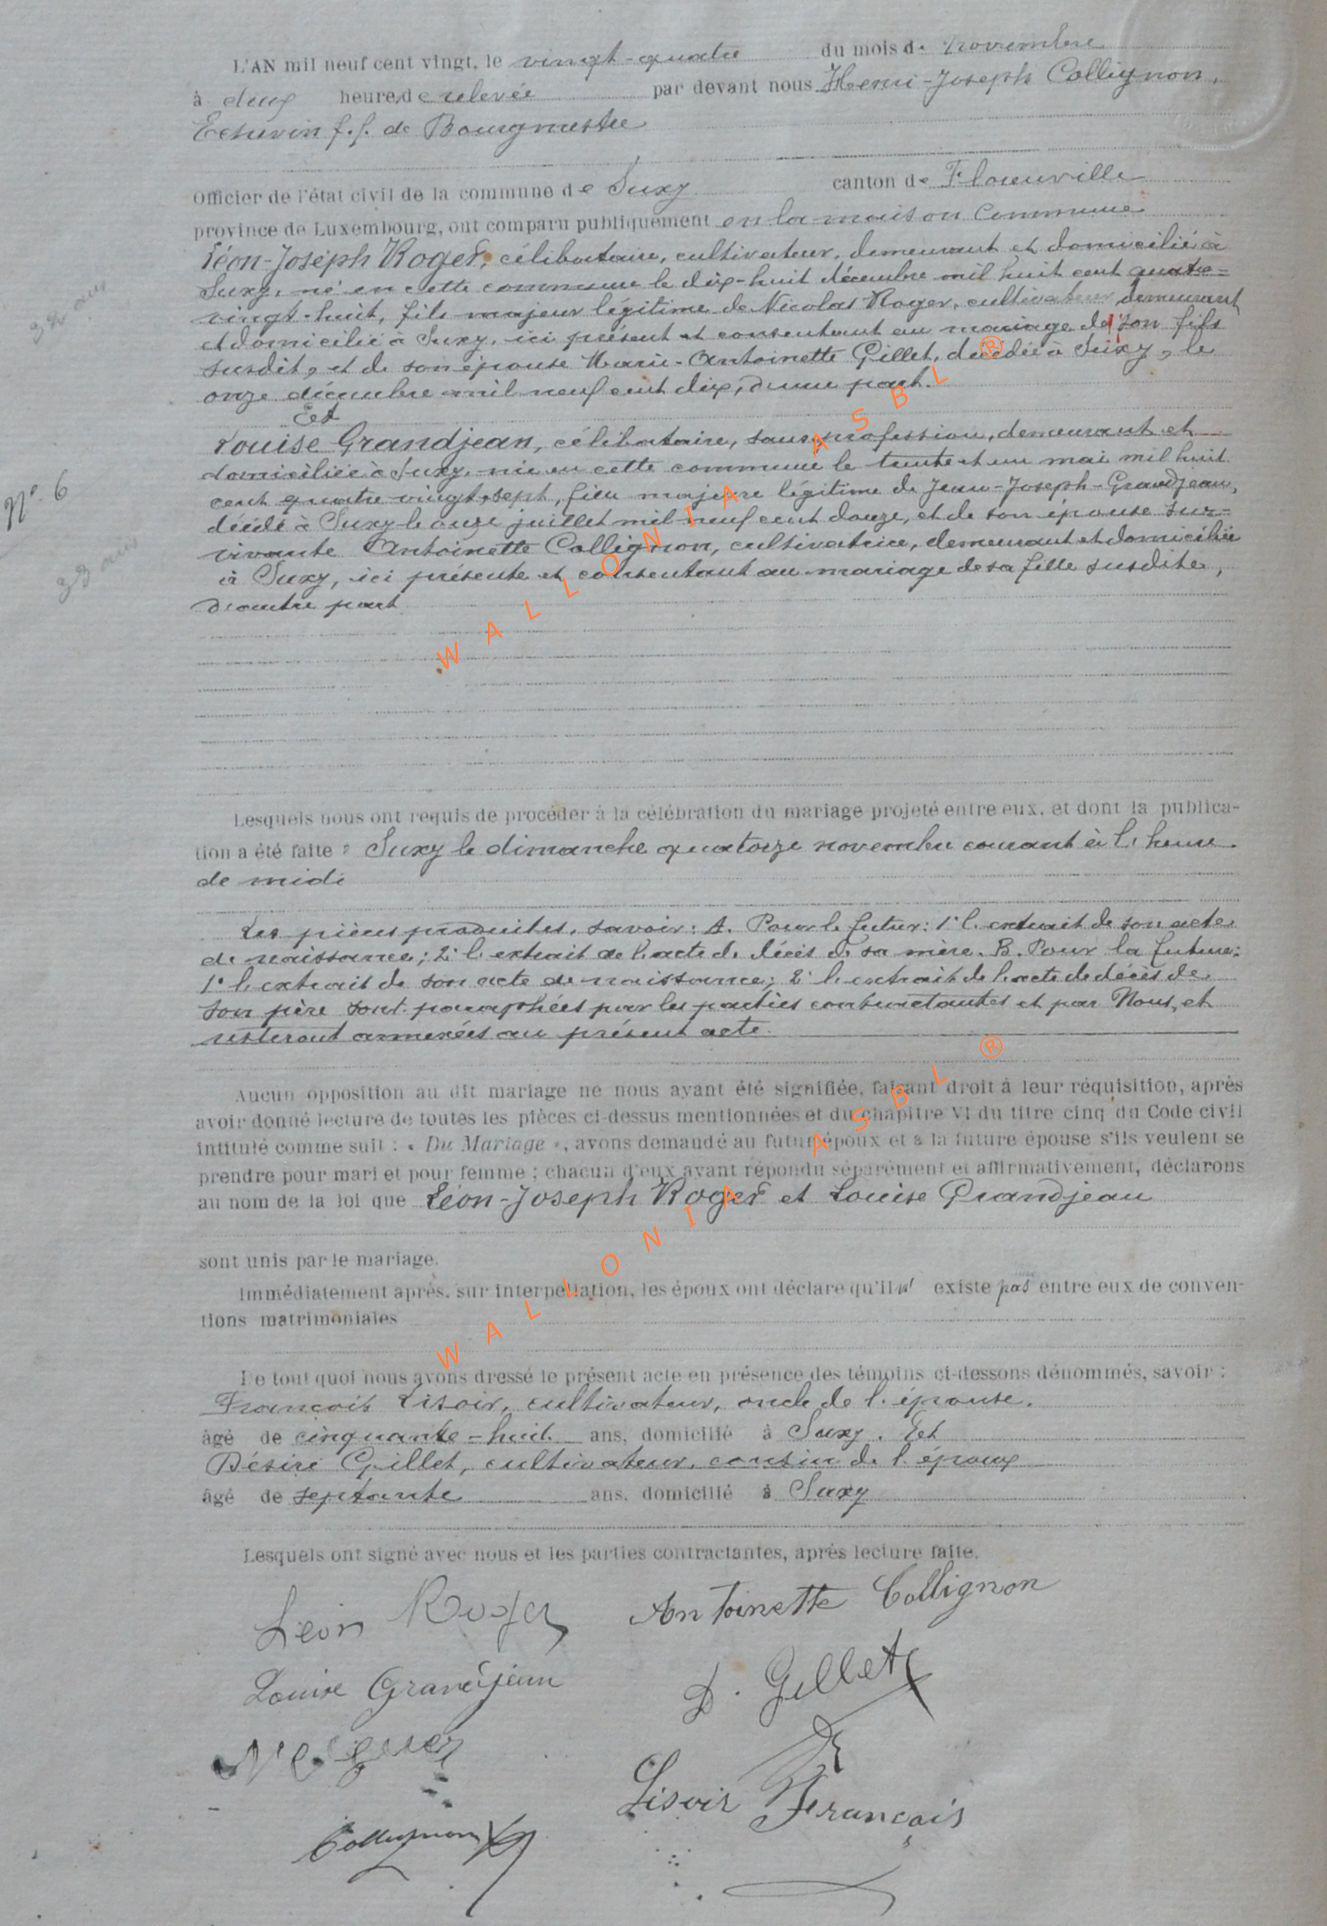 L'AN mil neuf cent vingt, le vingt-quatre du mois de novembre
à deux heure, de relevée par devant nous Henri-Joseph Collignon,
Echevin f.f. de Bourgmestre
Officier de l'état civil de la commune de Suxy canton de Florenville
province de Luxembourg, ont comparu publiquement en la maison commune
Léon-Joseph Roger, célibataire, cultivateur, demeurant et domicilié à
Suxy, né en cette commune le dix-huit décembre mil huit cent quatre-
vingt-huit, fils majeur légitime de Nicolas Roger, cultivateur demeurant
32 ans
et domicilié à Suxy, ici présent et consentant au mariage de son fils
susdit, et de son épouse Marie-Antoinette Gillet, décédée à Suxy, le
onze décembre mil neuf cent dix, d'une part.
Et
Louise Grandjean, célibataire, sans profession, demeurant et
domiciliée à Suxy, née en cette commune le trente et un mai mil huit
N° 6
cent quatre vingt-sept, fille majeure légitime de Jean-Joseph-Grandjean,
décédé à Suxy le onze juillet mil neuf cent douze, et de son épouse sur-
vivante Antoinette Collignon, cultivatrice, demeurant et domiciliée
33 ans
à Suxy, ici présente et consentant au mariage de sa fille susdite,
d'autre part
WALLONIA ASBL ®
Lesquels nous ont requis de procéder à la célébration du mariage projeté entre eux, et dont la publica-
tion a été faite à Suxy le dimanche quatorze novembre courant à l'heure
de midi
Les pièces produites, savoir: A. Pour le futur: 1° l'extrait de son acte
de naissance; 2° l'extrait de l'acte de décès de sa mère. B. Pour la future:
1° l'extrait de son acte de naissance; 2° l'extrait de l'acte de décès de
son père sont paraphées par les parties contractantes et par Nous, et
resteront annexées au présent acte.
Aucun opposition au dit mariage ne nous ayant été signifiée, faisant droit à leur réquisition, après
avoir donné lecture de toutes les pièces ci-dessus mentionnées et du chapitre VI du titre cinq du Code civil
intitulé comme suit : « Du Mariage », avons demandé au futur époux et à la future épouse s'ils veulent se
prendre pour mari et pour femme ; chacun d'eux ayant répondu séparément et affirmativement, déclarons
au nom de la loi que Léon-Joseph Roger et Louise Grandjean
sont unis par le mariage.
Immédiatement après, sur interpellation, les époux ont déclaré qu'il n' existe pas entre eux de conven-
tions matrimoniales
WALLONIA ASBL ®
De tout quoi nous avons dressé le présent acte en présence des témoins ci-dessons dénommés, savoir :
François Lisoir, cultivateur, oncle de l'épouse,
âgé de cinquante-huit ans, domicilié à Suxy. Et
Désiré Gillet, cultivateur, cousin de l'époux
âgé de septante ans, domicilié à Suxy
Lesquels ont signé avec nous et les parties contractantes, après lecture faite.
Léon Roger Antoinette Collignon
Louise Grandjean D. Gillet
N Roger
Lisoir François
Collignon